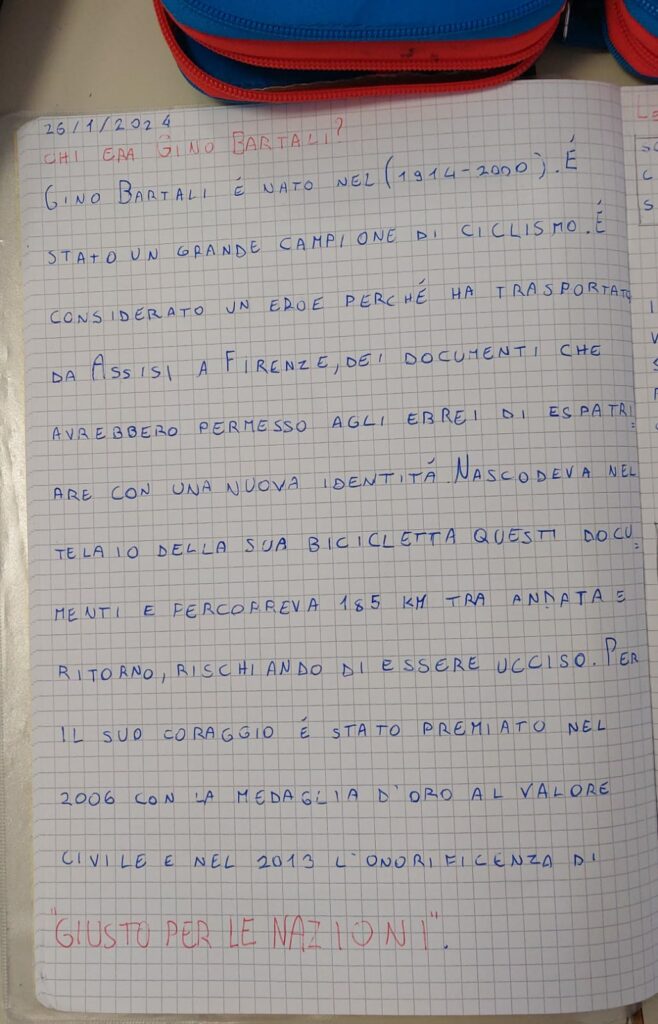 26/1/2024
CHI ERA GINO BARTALI?
GINO BARTALI É NATO NEL (1914-2000). É
STATO UN GRANDE CAMPIONE DI CICLISMO. É
CONSIDERATO UN EROE PERCHÉ HA TRASPORTATO
DA ASSISI A FIRENZE, DEI DOCUMENTI CHE
AVREBBERO PERMESSO AGLI EBREI DI ESPATRI=
ARE CON UNA NUOVA IDENTITÁ. NASCODEVA NEL
TELAIO DELLA SUA BICICLETTA QUESTI DOCU=
MENTI E PERCORREVA 185 KM TRA ANDATA E
RITORNO, RISCHIANDO DI ESSERE UCCISO. PER
IL SUO CORAGGIO É STATO PREMIATO NEL
2006 CON LA MEDAGLIA D'ORO AL VALORE
CIVILE E NEL 2013 L'ONORIFICENZA DI
"GIUSTO PER LE NAZIONI".